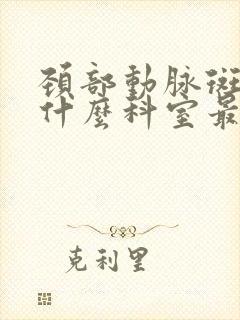 頚部動脉斑
什麼科室最
克利里